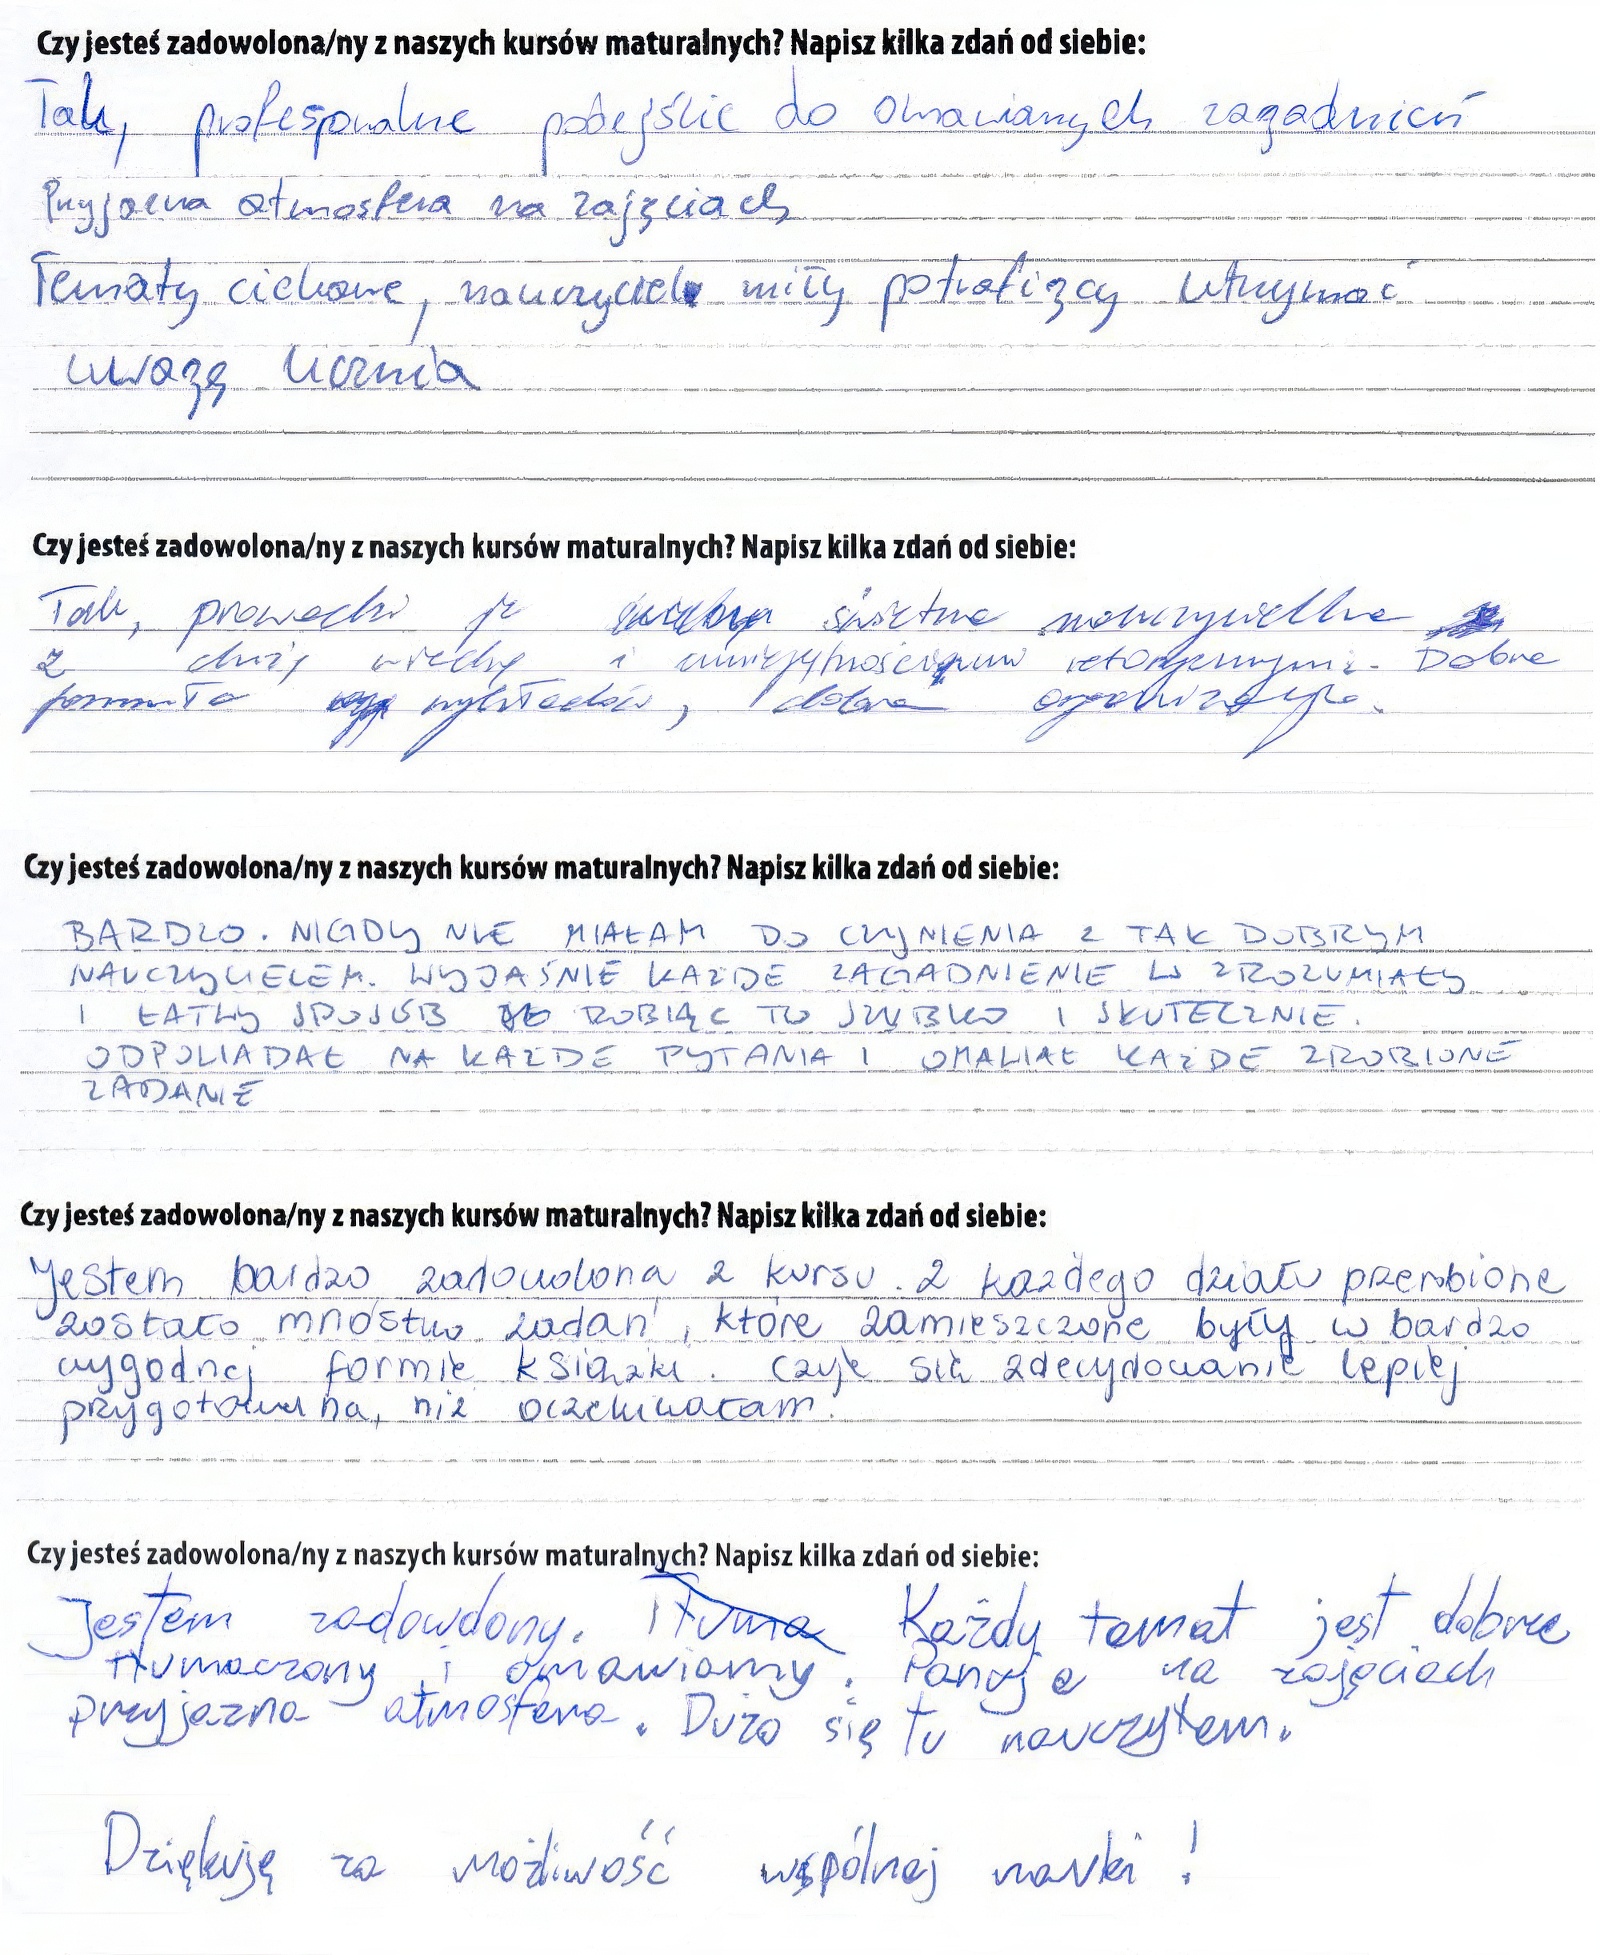 Czy jesteś zadowolona/ny z naszych kursów maturalnych? Napisz kilka zdań od siebie:
Tak, profesjonalne podejście do omawianych zagadnień
Przyjazna atmosfera na zajęciach
Tematy ciekawe, nauczyciel miły potrafiący utrzymać
uwagę ucznia
Czy jesteś zadowolona/ny z naszych kursów maturalnych? Napisz kilka zdań od siebie:
Tak, prowadzi je świetna nauczycielka
z dużą wiedzą i umiejętnościami retorycznymi. Dobra
formuła wykładów, dobra organizacja.
Czy jesteś zadowolona/ny z naszych kursów maturalnych? Napisz kilka zdań od siebie:
BARDZO. NIGDY NIE MIAŁAM DO CZYNIENIA Z TAK DOBRYM
NAUCZYCIELEM. WYJAŚNIE KAŻDE ZAGADNIENIE W ZROZUMIAŁY
I ŁATWY SPOSÓB ROBIĄC TO SZYBKO I SKUTECZNIE.
ODPOWIADAŁ NA KAŻDE PYTANIA I OMAWIAŁ KAŻDE ZROBIONE
ZADANIE
Czy jesteś zadowolona/ny z naszych kursów maturalnych? Napisz kilka zdań od siebie:
Jestem bardzo zadowolona z kursu. Z każdego działu przerobione
zostało mnóstwo zadań, które zamieszczone były w bardzo
wygodnej formie książki. Czuje się zdecydowanie lepiej
przygotowana, niż oczekiwałam.
Czy jesteś zadowolona/ny z naszych kursów maturalnych? Napisz kilka zdań od siebie:
Jestem zadowolony. Tłuma Każdy temat jest dobrze
tłumaczony i omawiany. Panuje na zajęciach
przyjazna atmosfera. Dużo się tu nauczyłem.
Dziękuję za możliwość wspólnej nauki!